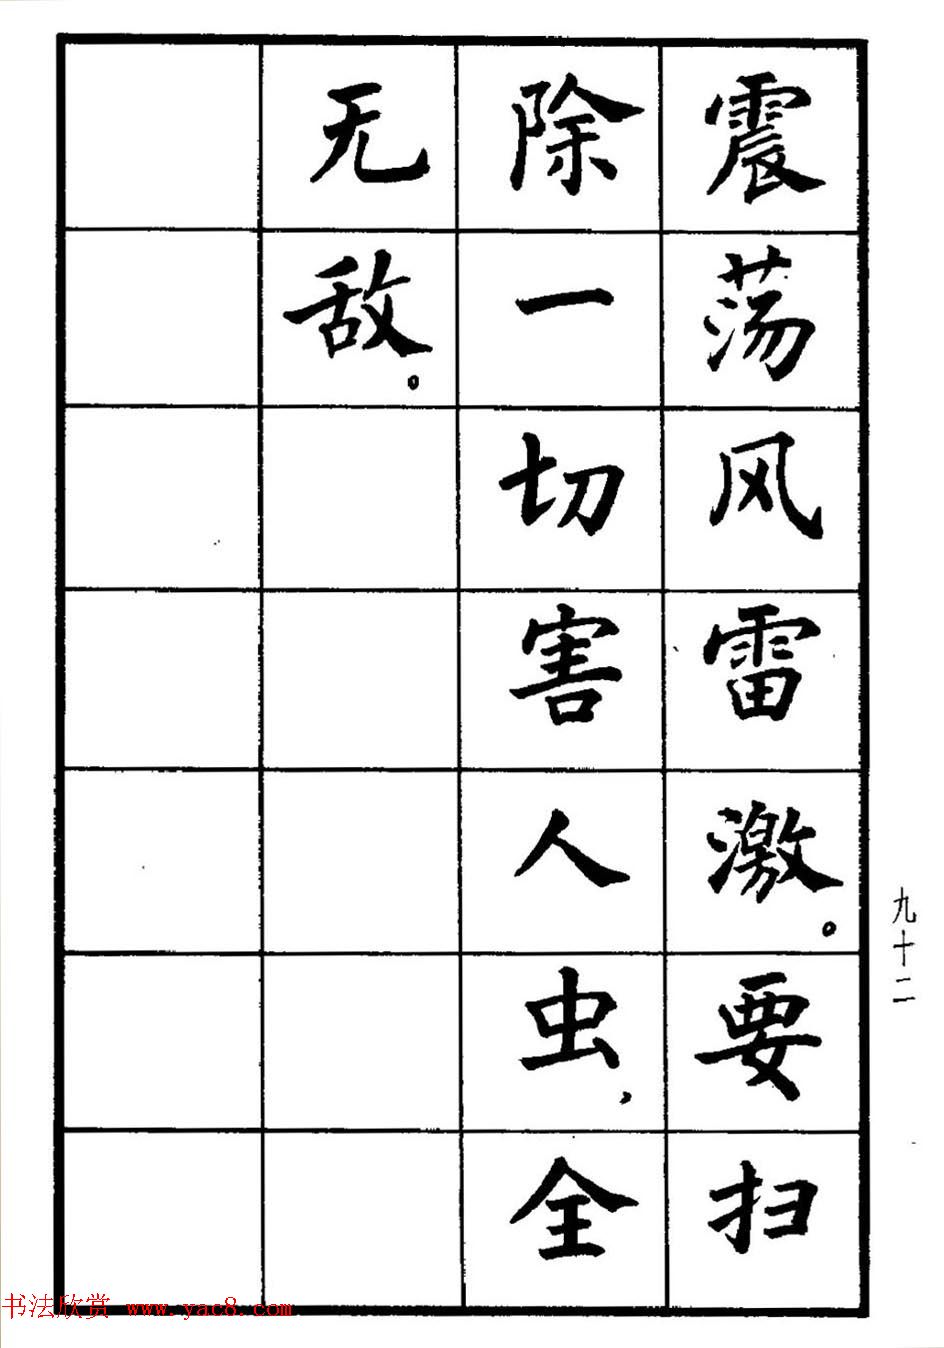 震荡风雷激。要扫
除一切害人虫，全
无敌。
九十二
书法欣赏 www.yac8.com